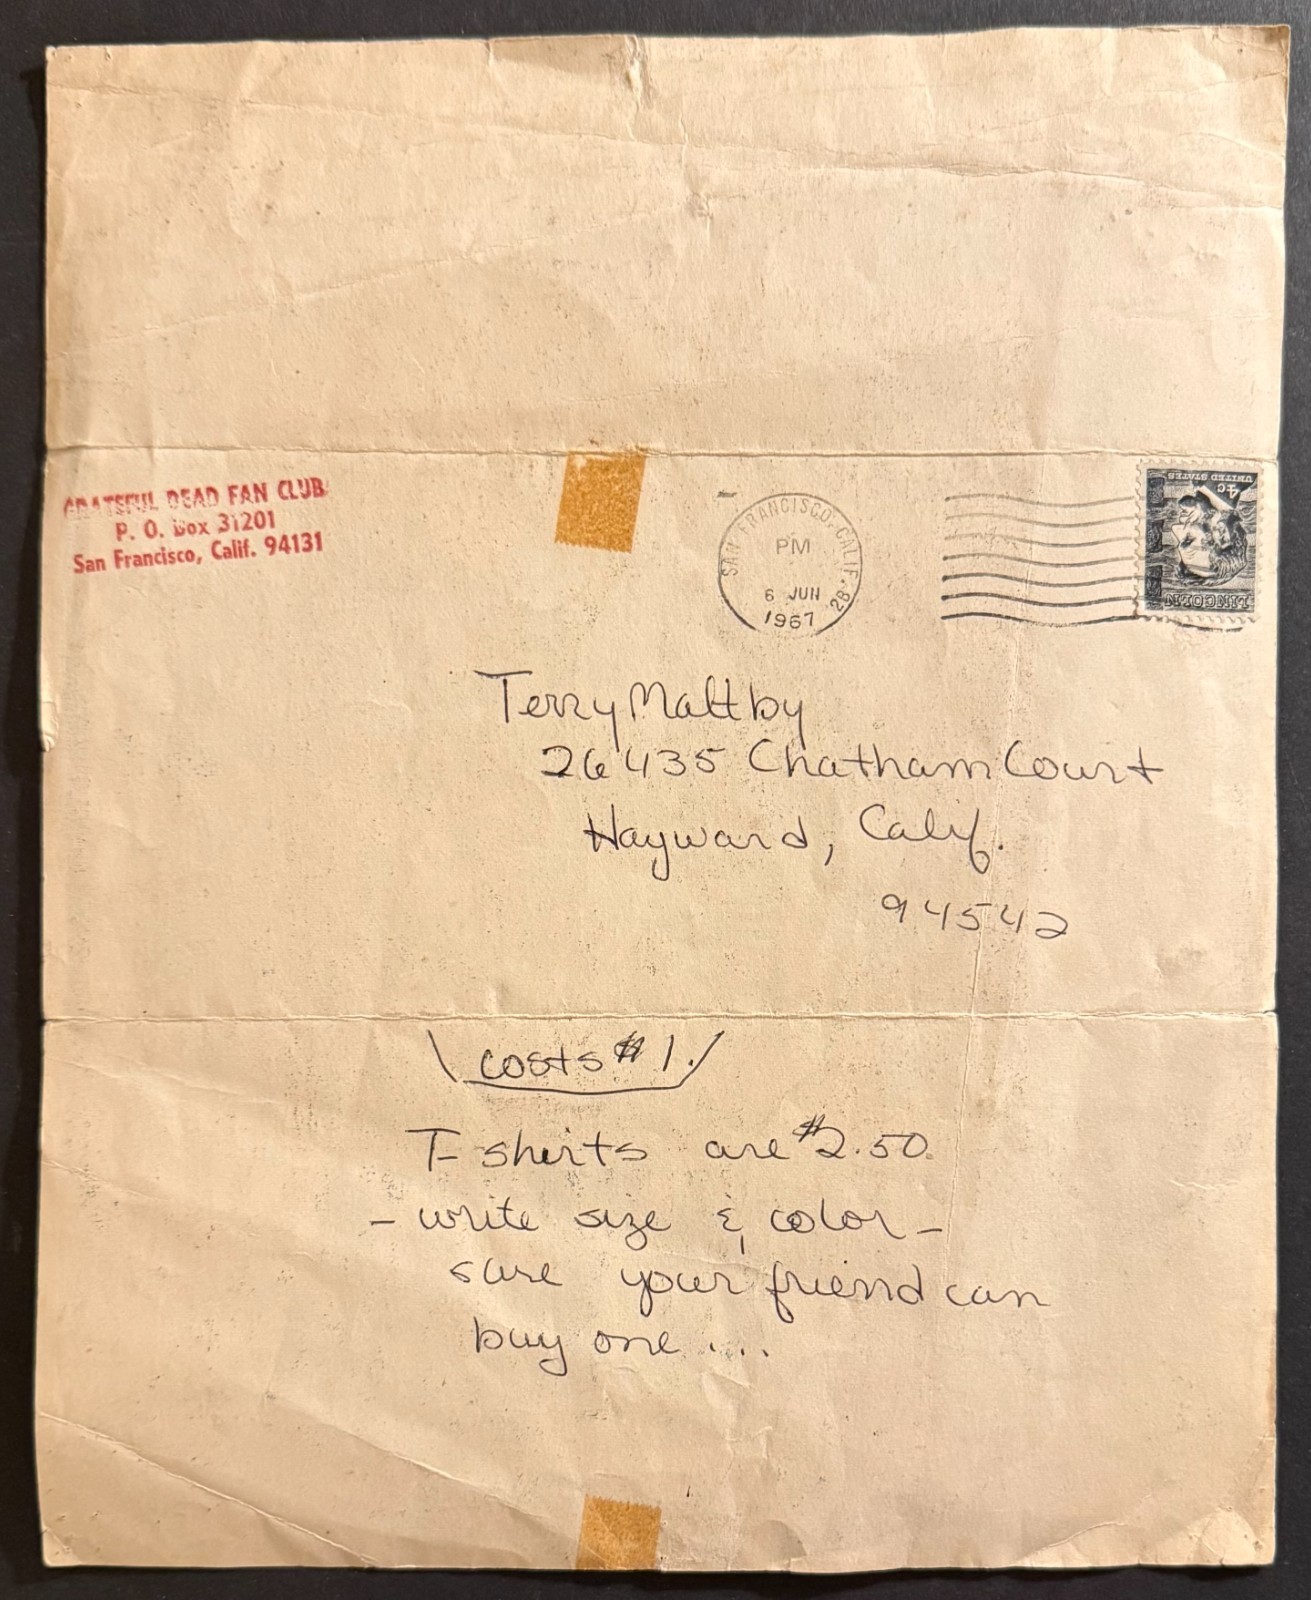 GRATEFUL DEAD FAN CLUB
P. O. Box 31201
San Francisco, Calif. 94131
SAN FRANCISCO, CALIF. 28
PM
6 JUN
1967
4c
UNITED STATES
LINCOLN
Terry Maltby
26435 Chatham Court
Hayward, Calif.
94542
costs $1.
T-shirts are $2.50.
- write size & color -
sure your friend can
buy one ....